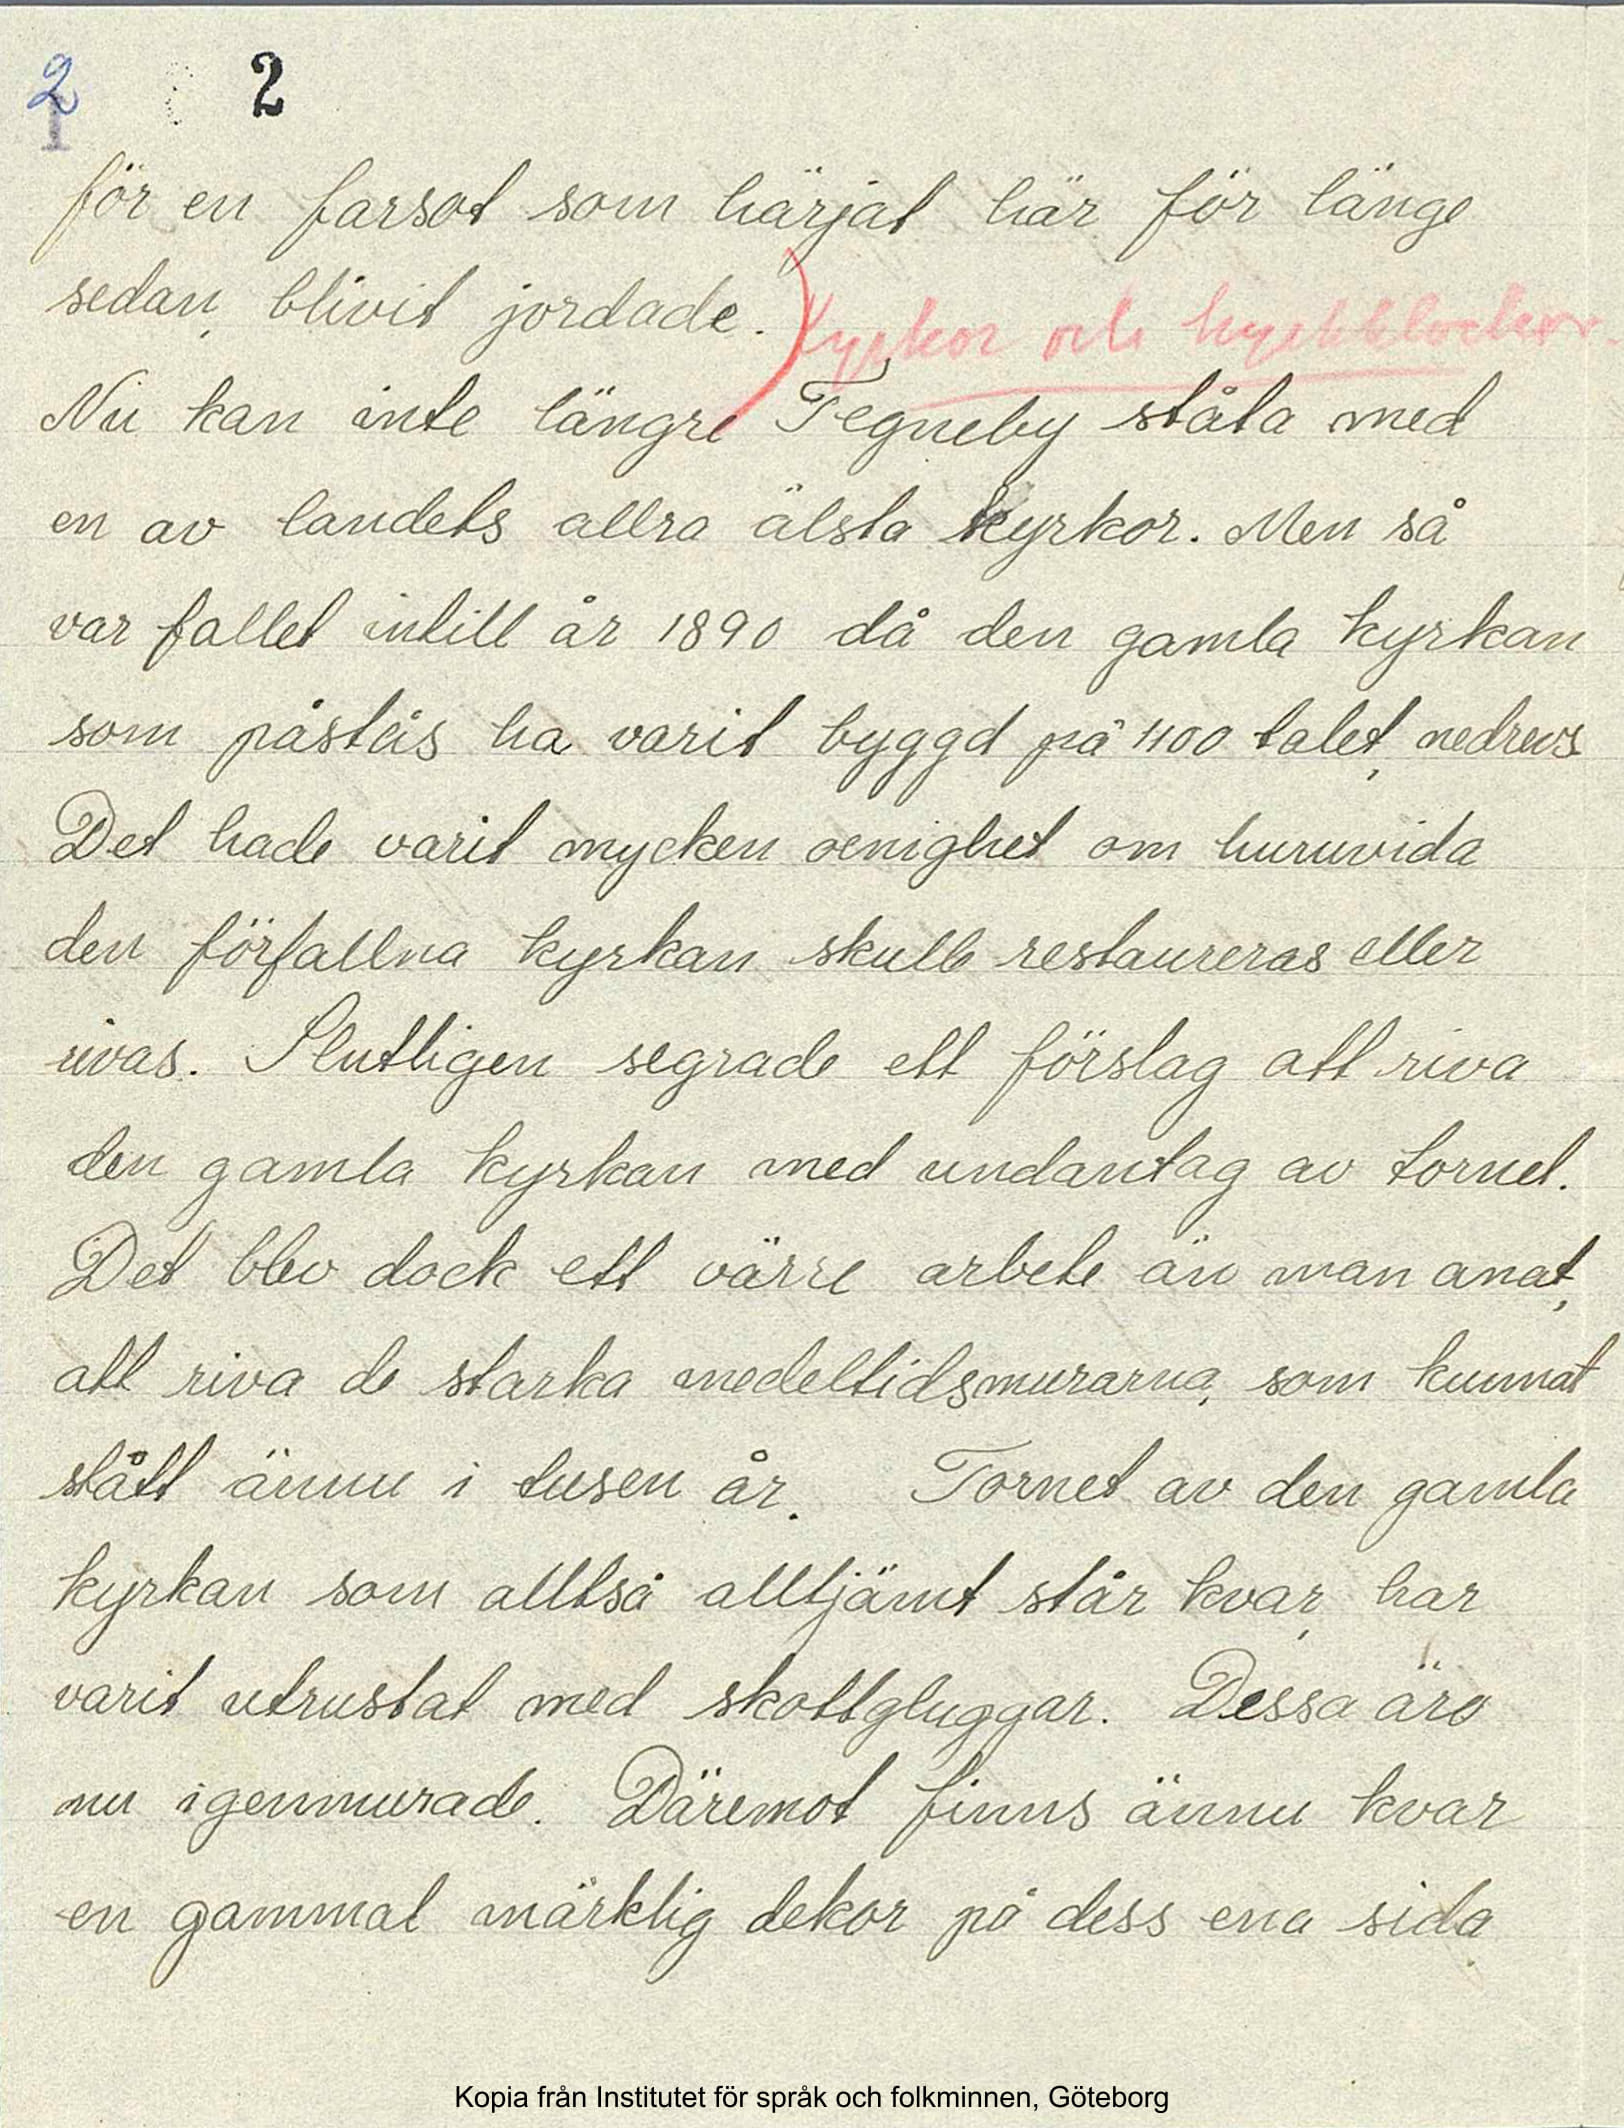 2 2
för en farsot som härjat här för länge
sedan, blivit jordade.
Kyrkor och kyrkklockor.
Nu kan inte längre Tegneby ståta med
en av landets allra älsta kyrkor. Men så
var fallet intill år 1890 då den gamla kyrkan
som påstås ha varit byggd på 1100 talet, nedrevs
Det hade varit mycken oenighet om huruvida
den förfallna kyrkan skulle restaureras eller
rivas. Slutligen segrade ett förslag att riva
den gamla kyrkan med undantag av tornet.
Det blev dock ett värre arbete än man anat,
att riva de starka medeltidsmurarna, som kunnat
stått ännu i tusen år. Tornet av den gamla
kyrkan som alltså alltjämt står kvar, har
varit utrustat med skottgluggar. Dessa äro
nu igenmurade. Däremot finns ännu kvar
en gammal märklig dekor på dess ena sida
Kopia från Institutet för språk och folkminnen, Göteborg